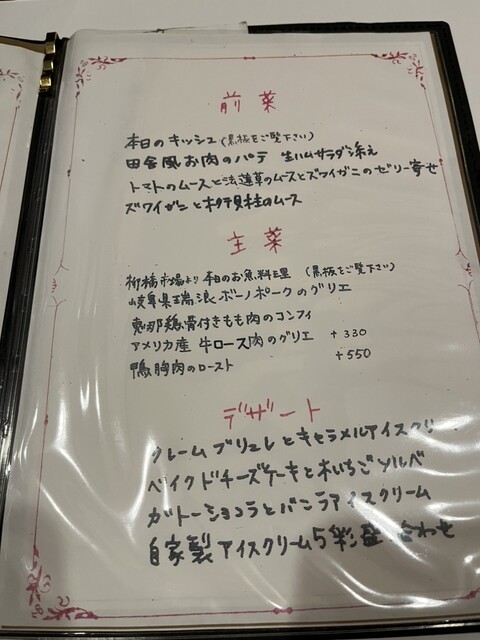 前菜
本日のキッシュ(黒板をご覧下さい)
田舎風お肉のパテ 生ハムサラダ添え
トマトのムースと法蓮草のムースとズワイがにのゼリー寄せ
ズワイガニと帆立貝柱のムース
主菜
柳橋市場より本日のお魚料理 (黒板をご覧下さい)
岐阜県瑞浪ボーノポークのグリエ
恵那鶏骨付きもも肉のコンフィ
アメリカ産 牛ロース肉のグリエ +330
鴨胸肉のロースト +550
デザート
クレームブリュレとキャラメルアイスクリ
ベイクドチーズケーキと木いちごソルベ
ガトーショコラとバニラアイスクリーム
自家製アイスクリーム5彩盛 合わせ